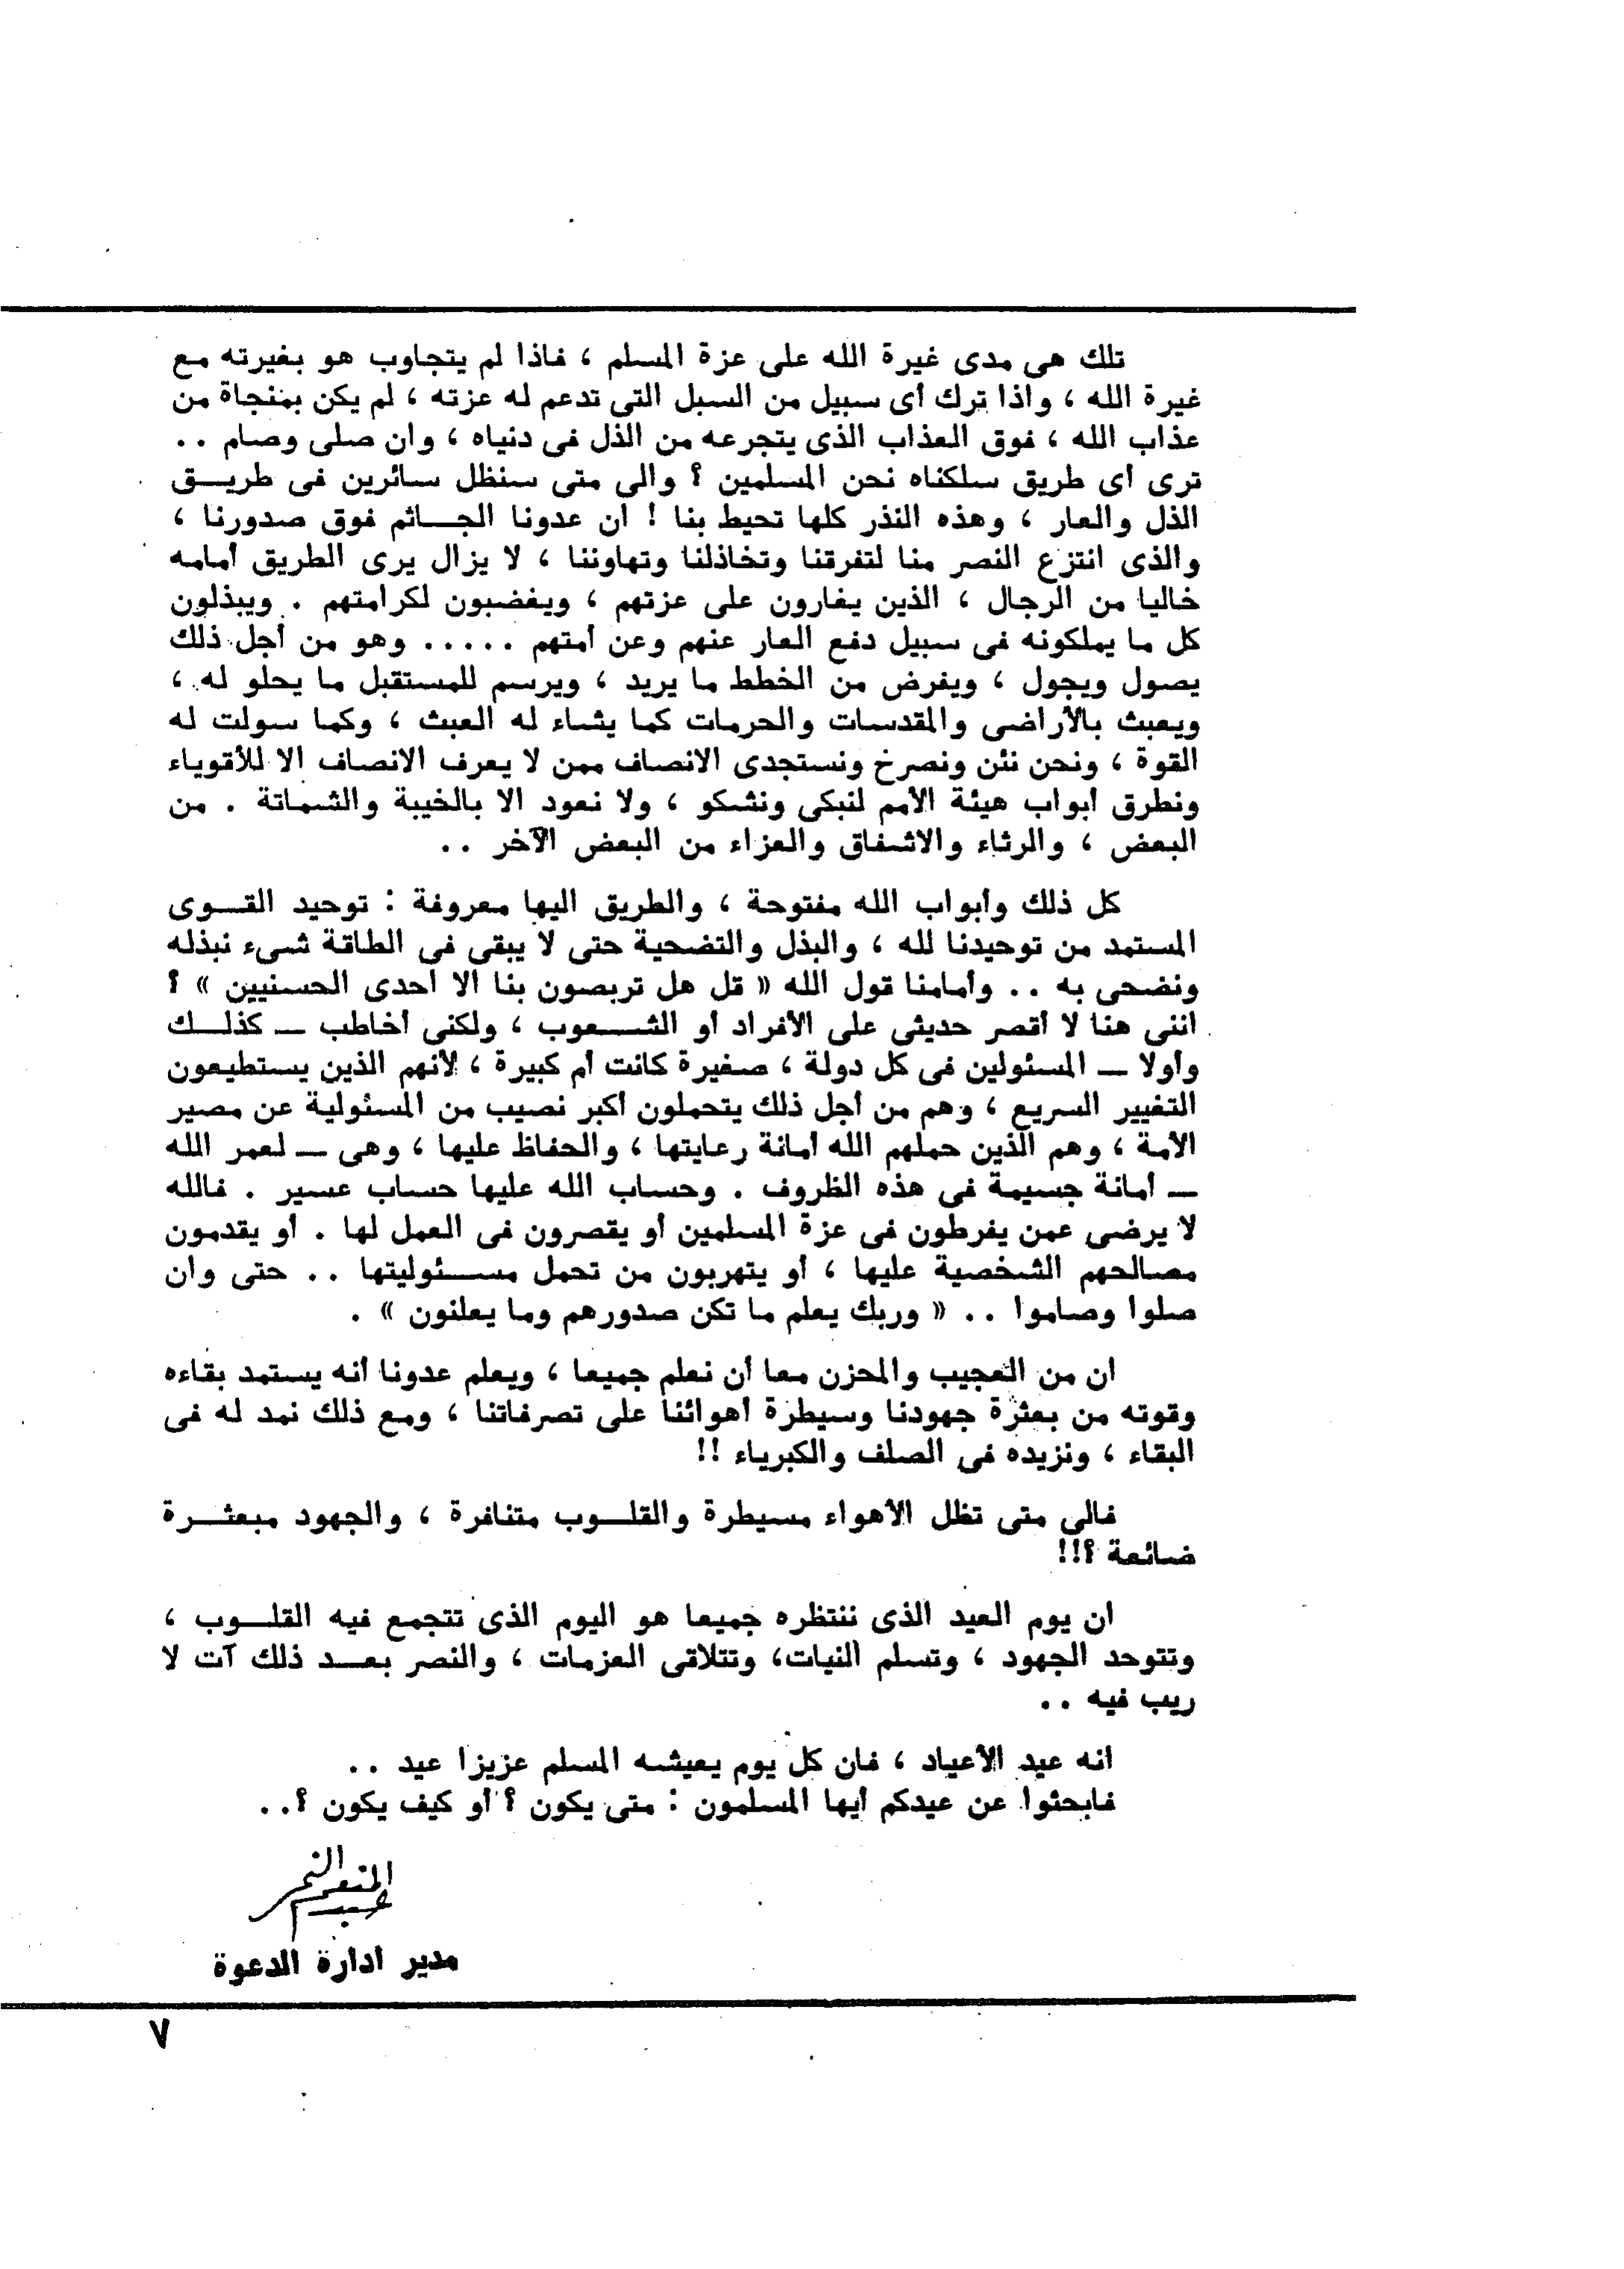 تلك هى مدى غيرة الله على عزة المسلم ، فاذا لم يتجاوب هو بغيرته مع
غيرة الله ، واذا ترك أى سبيل من السبل التى تدعم له عزته ، لم يكن بمنجاة من
عذاب الله ، فوق العذاب الذى يتجرعه من الذل فى دنياه ، وان صلى وصام . .
ترى أى طريق سلكناه نحن المسلمين ؟ والى متى سنظل سائرين فى طريــق
الذل والعار ، وهذه النذر كلها تحيط بنا ! ان عدونا الجــاثم فوق صدورنا ،
والذى انتزع النصر منا لتفرقنا وتخاذلنا وتهاوننا ، لا يزال يرى الطريق أمامه
خاليا من الرجال ، الذين يغارون على عزتهم ، ويغضبون لكرامتهم . ويبذلون
كل ما يملكونه فى سبيل دفع العار عنهم وعن أمتهم . . . . . وهو من أجل ذلك
يصول ويجول ، ويفرض من الخطط ما يريد ، ويرسم للمستقبل ما يحلو له ،
ويعبث بالأراضى والمقدسات والحرمات كما يشاء له العبث ، وكما سولت له
القوة ، ونحن نئن ونصرخ ونستجدى الانصاف ممن لا يعرف الانصاف الا للأقوياء
ونطرق أبواب هيئة الأمم لنبكى ونشكو ، ولا نعود الا بالخيبة والشماتة . من
البعض ، والرثاء والاشفاق والعزاء من البعض الآخر . .
كل ذلك وأبواب الله مفتوحة ، والطريق اليها معروفة : توحيد القــوى
المستمد من توحيدنا لله ، والبذل والتضحية حتى لا يبقى فى الطاقة شىء نبذله
ونضحى به . . وأمامنا قول الله « قل هل تربصون بنا الا احدى الحسنيين » ؟
اننى هنا لا أقصر حديثى على الأفراد أو الشــــعوب ، ولكنى أخاطب — كذلــك
وأولا — المسئولين فى كل دولة ، صغيرة كانت أم كبيرة ، لأنهم الذين يستطيعون
التغيير السريع ، وهم من أجل ذلك يتحملون أكبر نصيب من المسئولية عن مصير
الأمة ، وهم الذين حملهم الله أمانة رعايتها ، والحفاظ عليها ، وهى — لعمر الله
— أمانة جسيمة فى هذه الظروف . وحساب الله عليها حساب عسير . فالله
لا يرضى عمن يفرطون فى عزة المسلمين أو يقصرون فى العمل لها . أو يقدمون
مصالحهم الشخصية عليها ، أو يتهربون من تحمل مســئوليتها . . حتى وان
صلوا وصاموا . . « وربك يعلم ما تكن صدورهم وما يعلنون » .
ان من العجيب والمحزن معا أن نعلم جميعا ، ويعلم عدونا أنه يستمد بقاءه
وقوته من بعثرة جهودنا وسيطرة أهوائنا على تصرفاتنا ، ومع ذلك نمد له فى
البقاء ، ونزيده فى الصلف والكبرياء !!
فالى متى تظل الأهواء مسيطرة والقلــوب متنافرة ، والجهود مبعثــرة
ضائعة ؟!!
ان يوم العيد الذى ننتظره جميعا هو اليوم الذى تتجمع فيه القلــوب ،
وتتوحد الجهود ، وتسلم النيات، وتتلاقى العزمات ، والنصر بعــد ذلك آت لا
ريب فيه . .
انه عيد الأعياد ، فان كل يوم يعيشه المسلم عزيزا عيد . .
فابحثوا عن عيدكم أيها المسلمون : متى يكون ؟ أو كيف يكون ؟ . .
عبد المنعم النمر
مدير ادارة الدعوة
٧